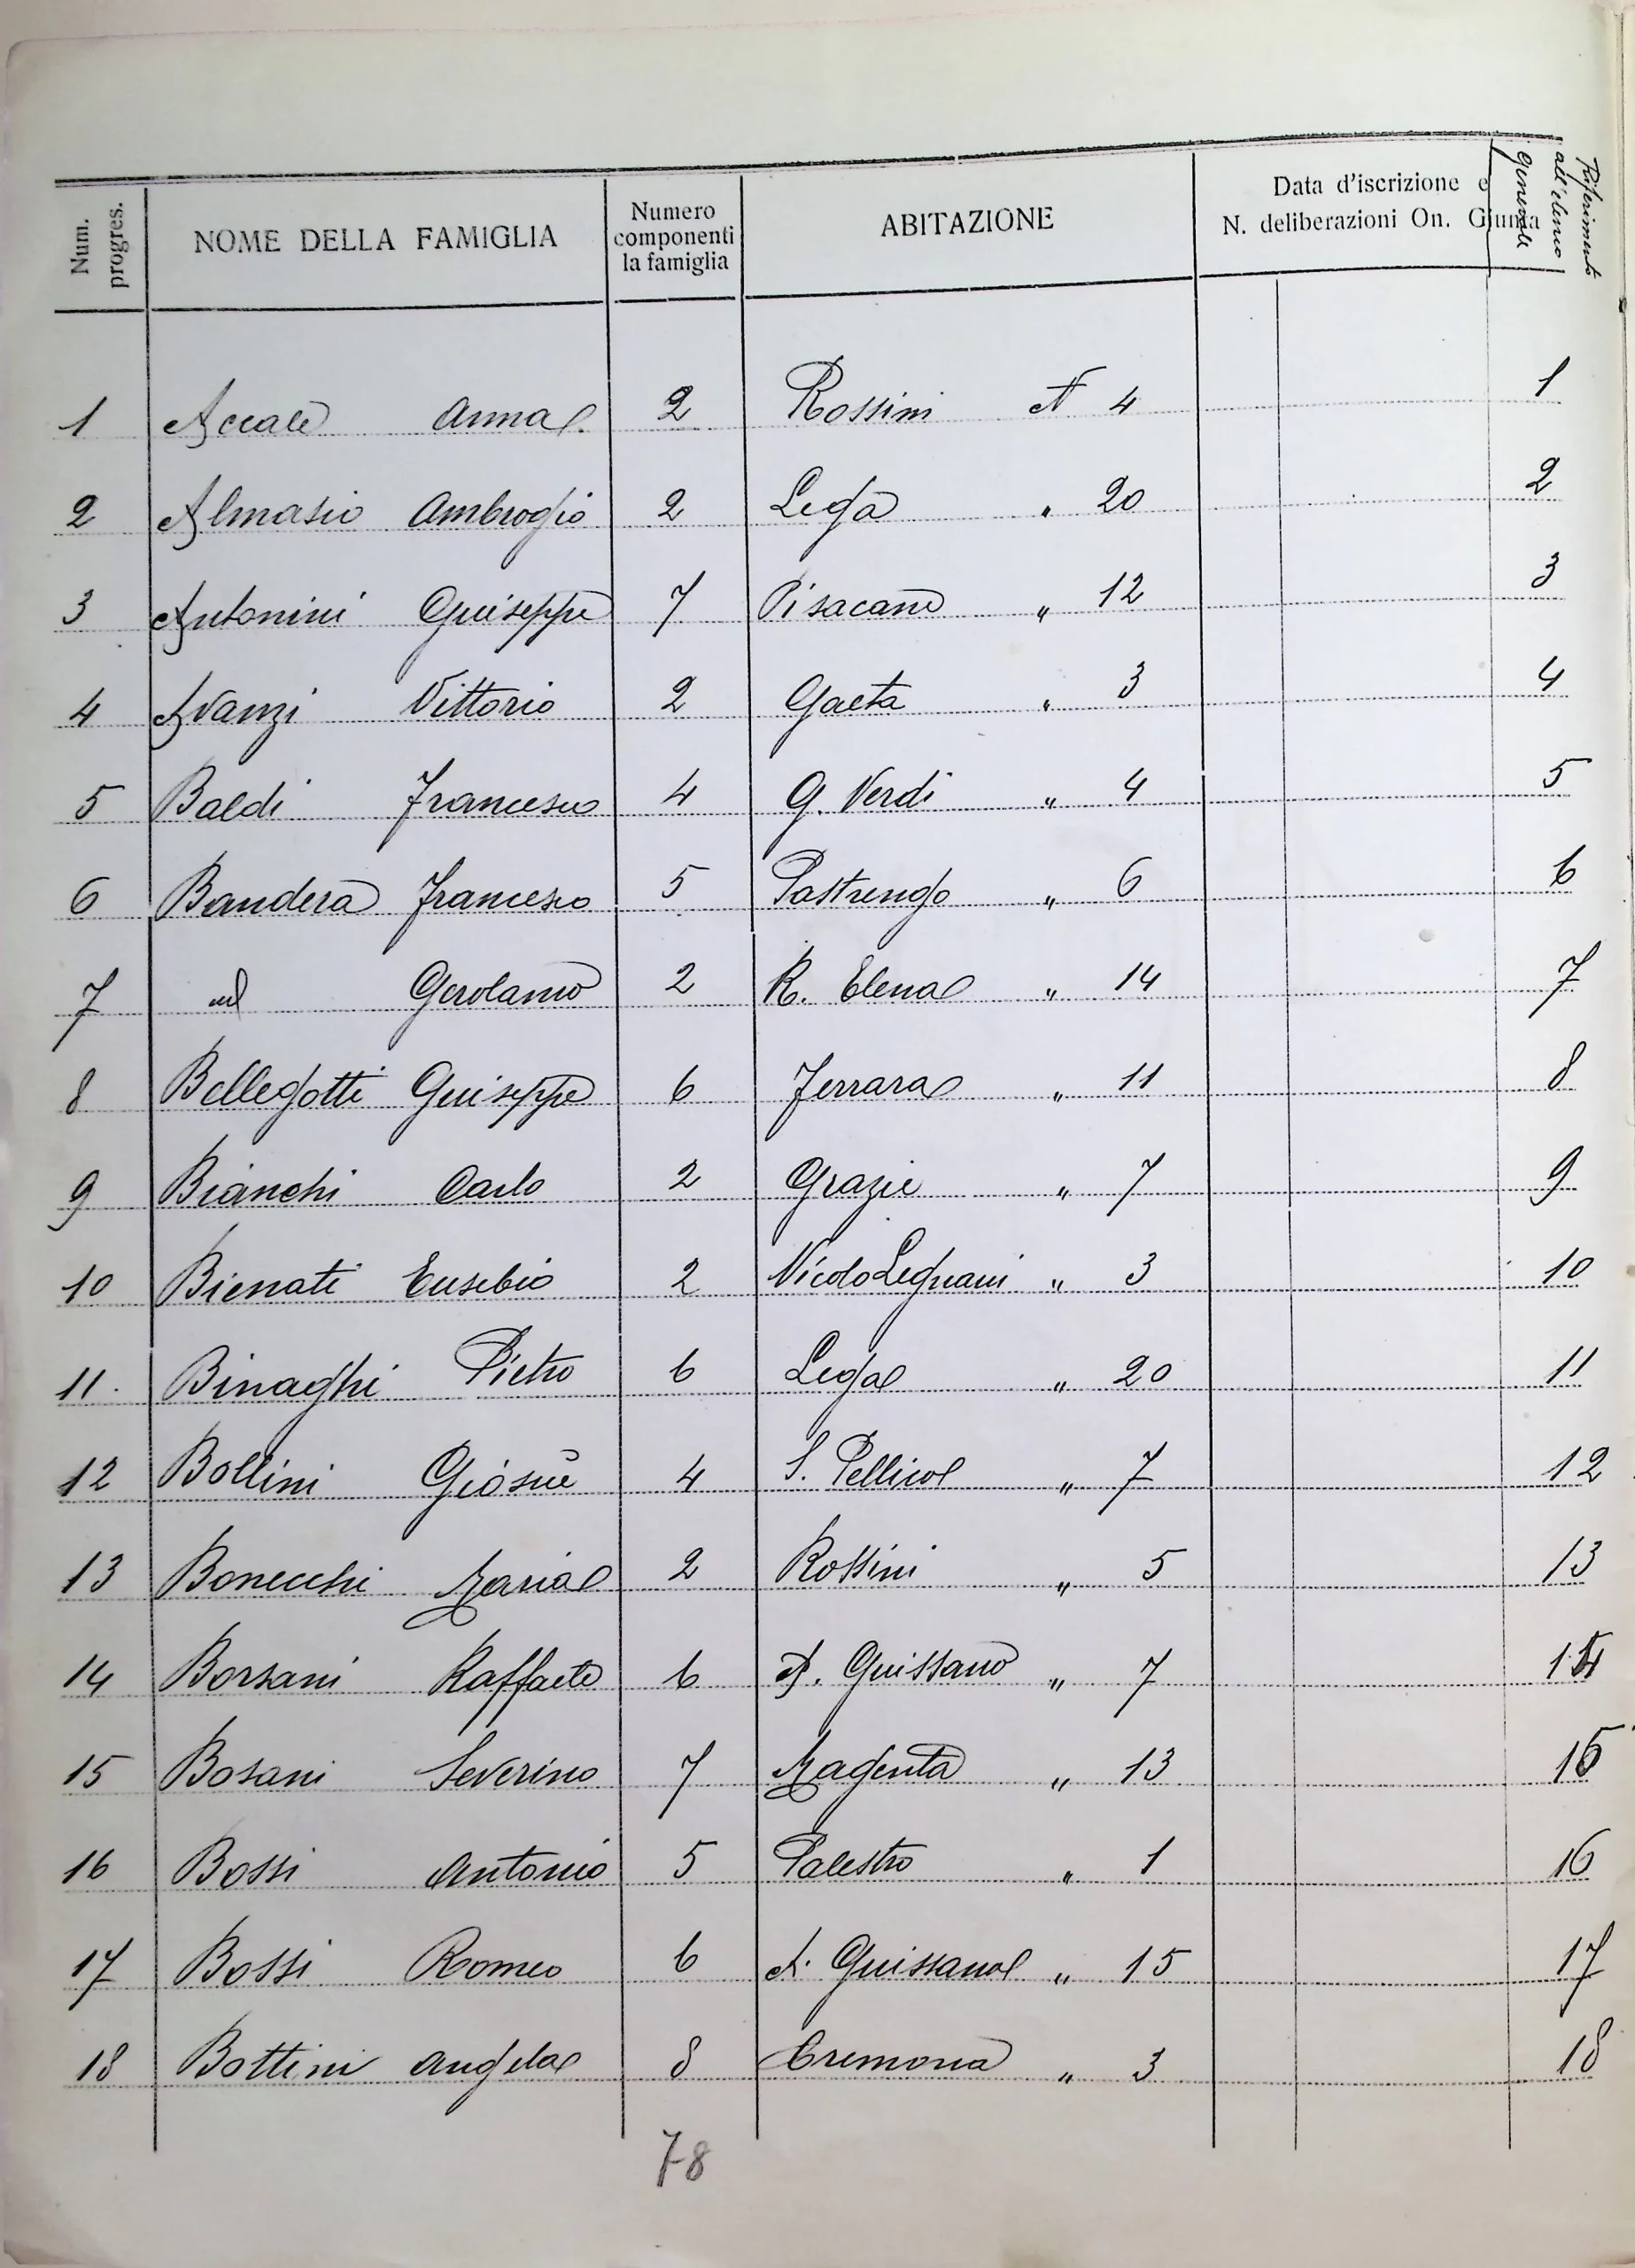 Num. progres. NOME DELLA FAMIGLIA Numero componenti la famiglia ABITAZIONE Data d'iscrizione e N. deliberazioni On. Giunta Riferimento all'elenco Generale
1 Accale Anna 2 Rossini N 4 1
2 Almasio Ambrogio 2 Lega " 20 2
3 Antonini Giuseppe 7 Pisacane " 12 3
4 Avanzi Vittorio 2 Gaeta " 3 4
5 Baldi Francesco 4 G. Verdi " 4 5
6 Bandera Francesco 5 Pastrengo " 6 6
7 id Gerolamo 2 R. Elena " 14 7
8 Bellegotti Giuseppe 6 Ferrara " 11 8
9 Bianchi Carlo 2 Grazie " 7 9
10 Bienati Eusebio 2 Nicolo Legnani " 3 10
11. Binaghi Pietro 6 Lega " 20 11
12 Bollini Giosuè 4 S. Pellico " 7 12
13 Bonecchi Maria 2 Rossini " 5 13
14 Borsani Raffaele 6 A. Guissano " 7 14
15 Bosani Severino 7 Magenta " 13 15
16 Bossi Antonio 5 Palestro " 1 16
17 Bossi Romeo 6 A. Guissano " 15 17
18 Bottini Angela 8 Cremona " 3 18
78